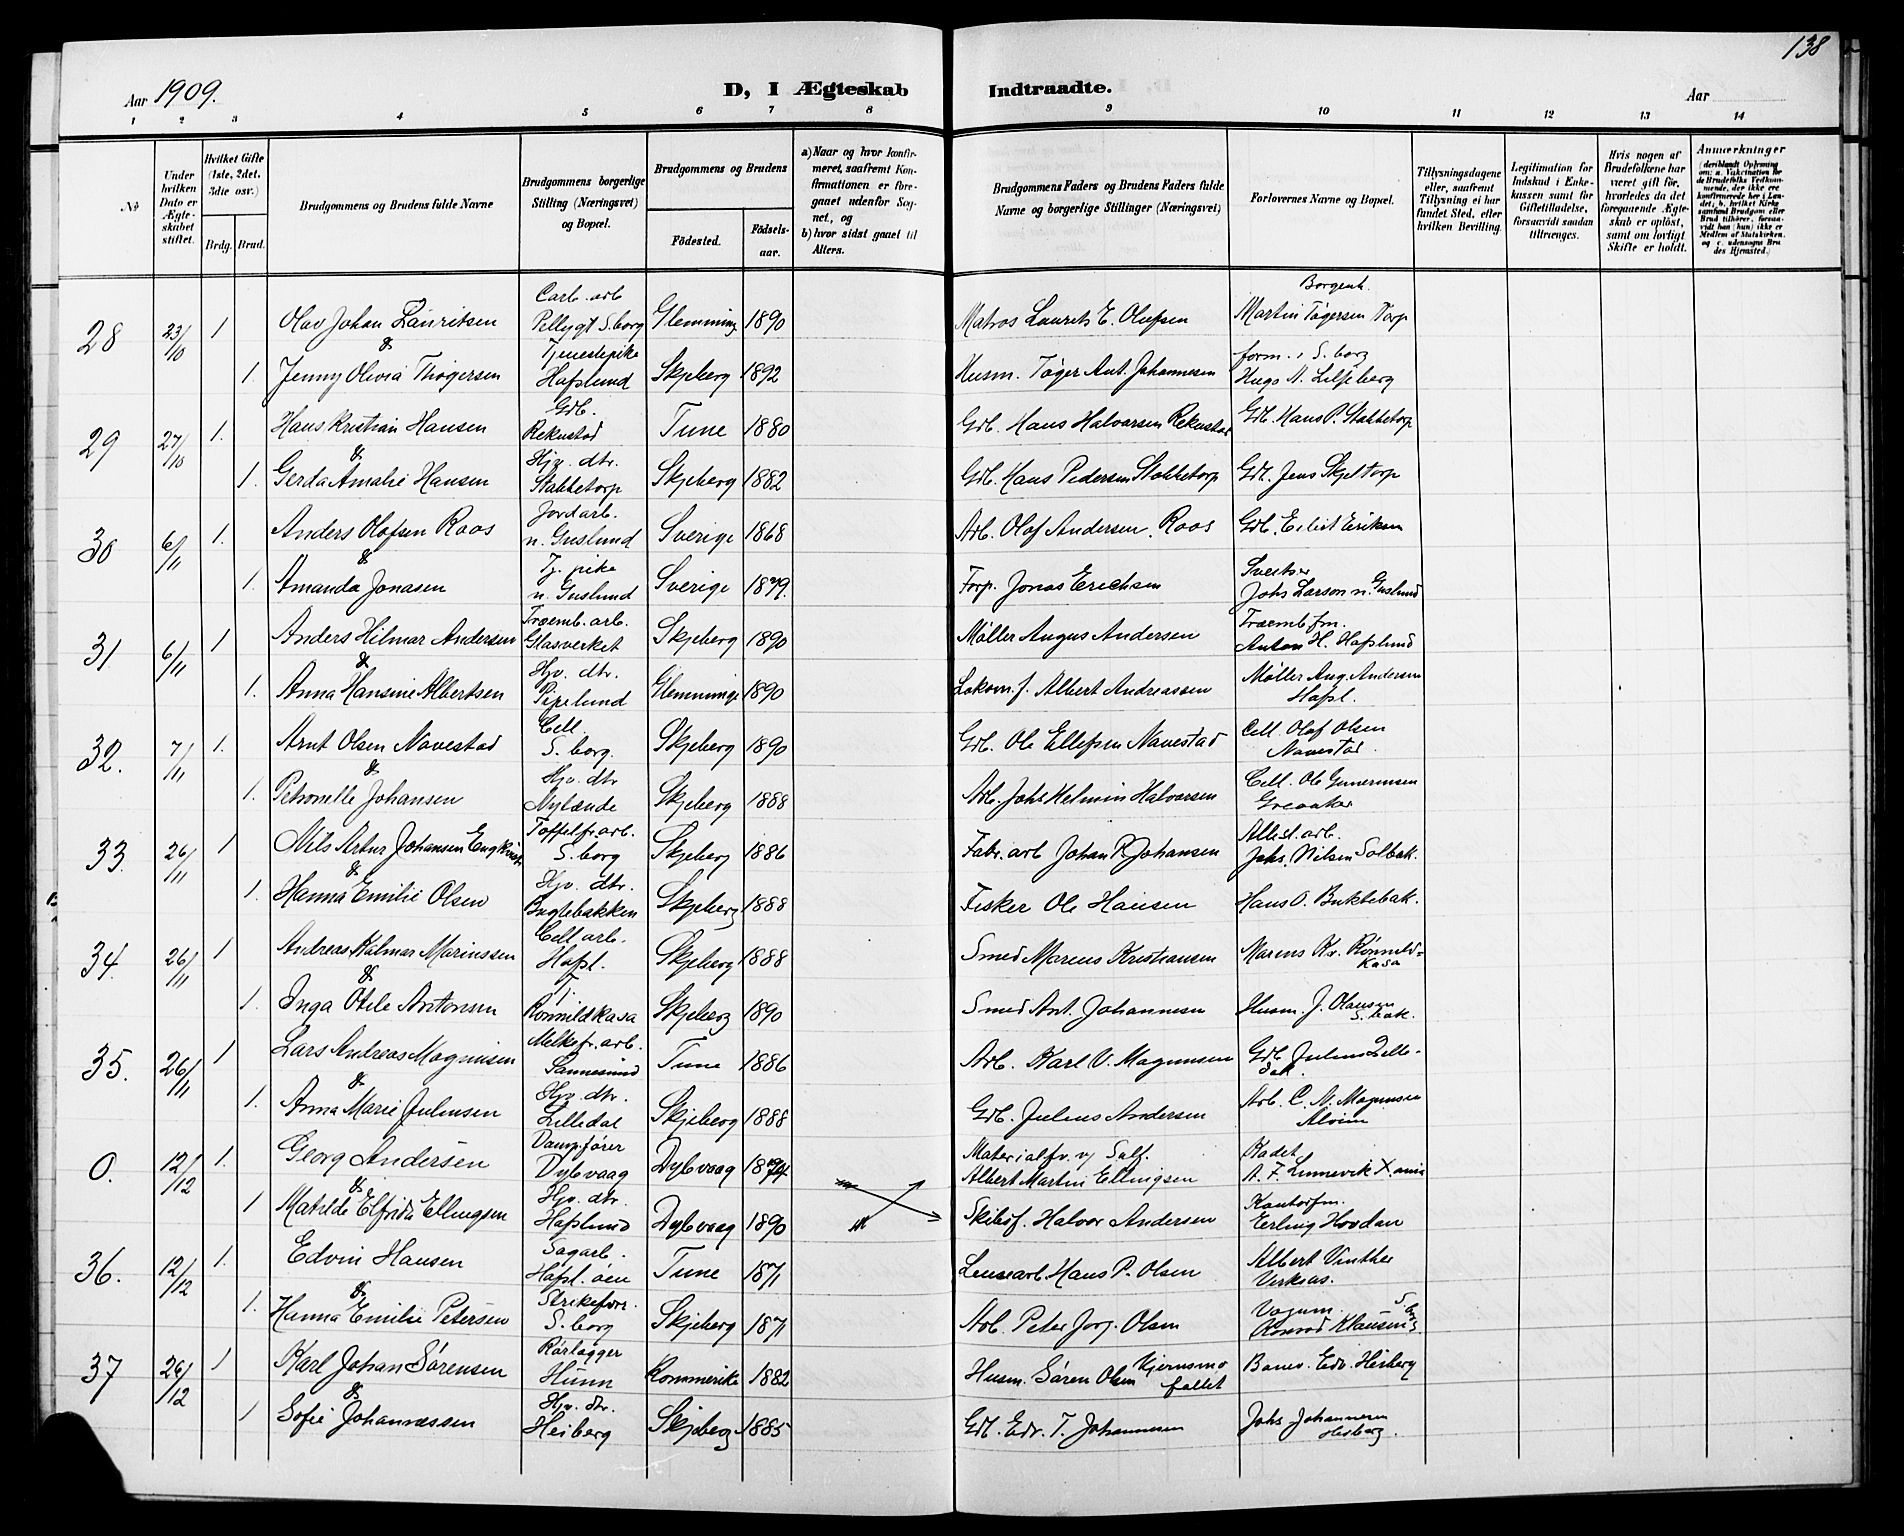 138
Aar 1909.
D, I Ægteskab Indtraadte.
Aar
1 2 3 4 5 6 7 8 9 10 11 12 13 14
No
Under hvilken Dato er Ægteskabet stiftet.
Hvilket Gifte (1ste, 2det, 3die osv.)
Brdg. Brud.
Brudgommens og Brudens fulde Navne
Brudgommens borgerlige Stilling (Næringsvei) og Bopæl.
Brudgommens og Brudens
Födested.
Födselsaar.
a) Naar og hvor konfirmeret, saafremt Konfirmationen er foregaaet udenfor Sognet, og
b) hvor sidst gaaet til Alters.
Brudgommens Faders og Brudens Faders fulde Navne og borgerlige Stillinger (Næringsvei)
Forlovernes Navne og Bopæl.
Tillysningsdagene eller, saafremt Tillysning ei har fundet Sted, efter hvilken Bevilling.
Legitimation for Indskud i Enkekassen samt for Giftetilladelse, forsaavidt saadan tiltrænges.
Hvis nogen af Brudefolkene har været gift för, hvorledes da det foregaaende Ægteskab er oplöst, samt om lovligt Skifte er holdt.
Anmærkninger
Borgenh.
28 23/10 1 Olav Johan Lauritsen Carb. arb S.borg Glemminge 1890 Matros Laurits E. Olafsen Martin Tögersen Torp
&
1. Jenny Olivia Thögersen Tjenestepike Hafslund Skjeberg 1892 Husm. Töger Ant. Johannesen form. i S.borg Hugo N. Liljeberg
29 27/10 1. Hans Kristian Hansen Gdb. Rekustad Tune 1880 Gdb. Hans Halvorsen Rekustad Gdb. Hans P. Stabbetorp
&
1. Gerda Amalie Hansen Hjv. dtr. Stabbetorp Skjeberg 1882 Gdb. Hans Pedersen Stabbetorp Gdb. Jens Skjeltorp
30 6/11 1. Anders Olofsen Roos Jordarb. n. Guslund Sverige 1868 Arb. Olof Andersen Roos Gdb. Eriksen
&
1. Amanda Jonasen Tj. pike n. Guslund Sverige 1879. Torp. Jonas Erichsen Sveitser Johs Larson n. Guslund
31 6/11 1 Anders Hilmar Andersen Træmb. arb. Glasverket Skjeberg 1890 Møller Augus Andersen Træmb fm. Anton H. Hafslund
&
1. Anna Hansine Albertsen Hjv. dtr. Pipelund Glemminge 1890 Lokom. f. Albert Andreassen Møller Aug. Andersen Hafsl.
32. 7/11 1. Arnt Olsen Navestad Cell. S.borg. Skjeberg 1890 Gdb. Ole Ellefsen Navestad Cell. Olaf Olsen Navestad.
&
1. Petronelle Johansen Hjv. dtr Nylænde Skjeberg 1888 Arb. Johs Helmin Halvorsen Cell. Ole Guneriusen Greaaker
33. 26/11 1 Nils Artur Johansen Toffelfr. arb. S.borg Skjeberg 1886 Fabr. arb Johan P. Johansen Johs. Nilsen Solbak.
&
1. Hanna Emilie Olsen Hjv. dtr. Bugtebakken Skjeberg 1888 Fisker Ole Hansen Hans O. Buktebak.
34. 26/11 1 Andreas Kalmar Marinssen Cell arb. Hafsl. Skjeberg 1888 Smed Marius Kristiansen Marius Kr. Rönnildkasa
&
1. Inga Otile Antonsen Tj. Ronnildkasa Skjeberg 1890 Smed Ant. Johannesen Husm. J. Olausen
35. 26/11 1 Lars Andreas Magnusen Melkefr. arb. Sannesund Tune 1886 Arb. Karl V. Magnusen Gdb. Julius Lilledal.
&
1. Anna Marie Juliusen Hjv. dtr. Lilledal Skjeberg 1888 Gdb. Julius Andersen Arb. C. N. Magnusen Alvim
0. 12/12 1. Georg Andersen Damp.fører Dybvaag Dybvaag 1874 Materialfv. v/ Sulf. Albert Martin Ellingsen Kadet A. F. Linnevik
&
1 Matilde Elfrida Ellingsen Hjv. dtr. Hafslund Dybvaag 1890 Skibsf. Halvor Andersen Kontorfm. Erling Hovdan
36. 12/12 1. Edvin Hansen Sagarb. Hafsl. öen Tune 1871 Lensearb. Hans P. Olsen Albert Vinther
&
1. Hanna Emilie Petersen Strikeforr. S.borg Skjeberg 1871 Arb. Peter Jörg. Olsen Vognm. Konrad Klausen S.borg
37 26/12 1 Karl Johan Sörensen Rörlægger Hunn Rommerike 1882 Husm. Sören Olsen Kjernsmofallet Banev. Edv. Heiberg
&
1 Sofie Johannessen Hjv. dtr. Heiberg Skjeberg 1885 Gdb. Edv. T. Johannesen Johs Johannesen Heiberg.